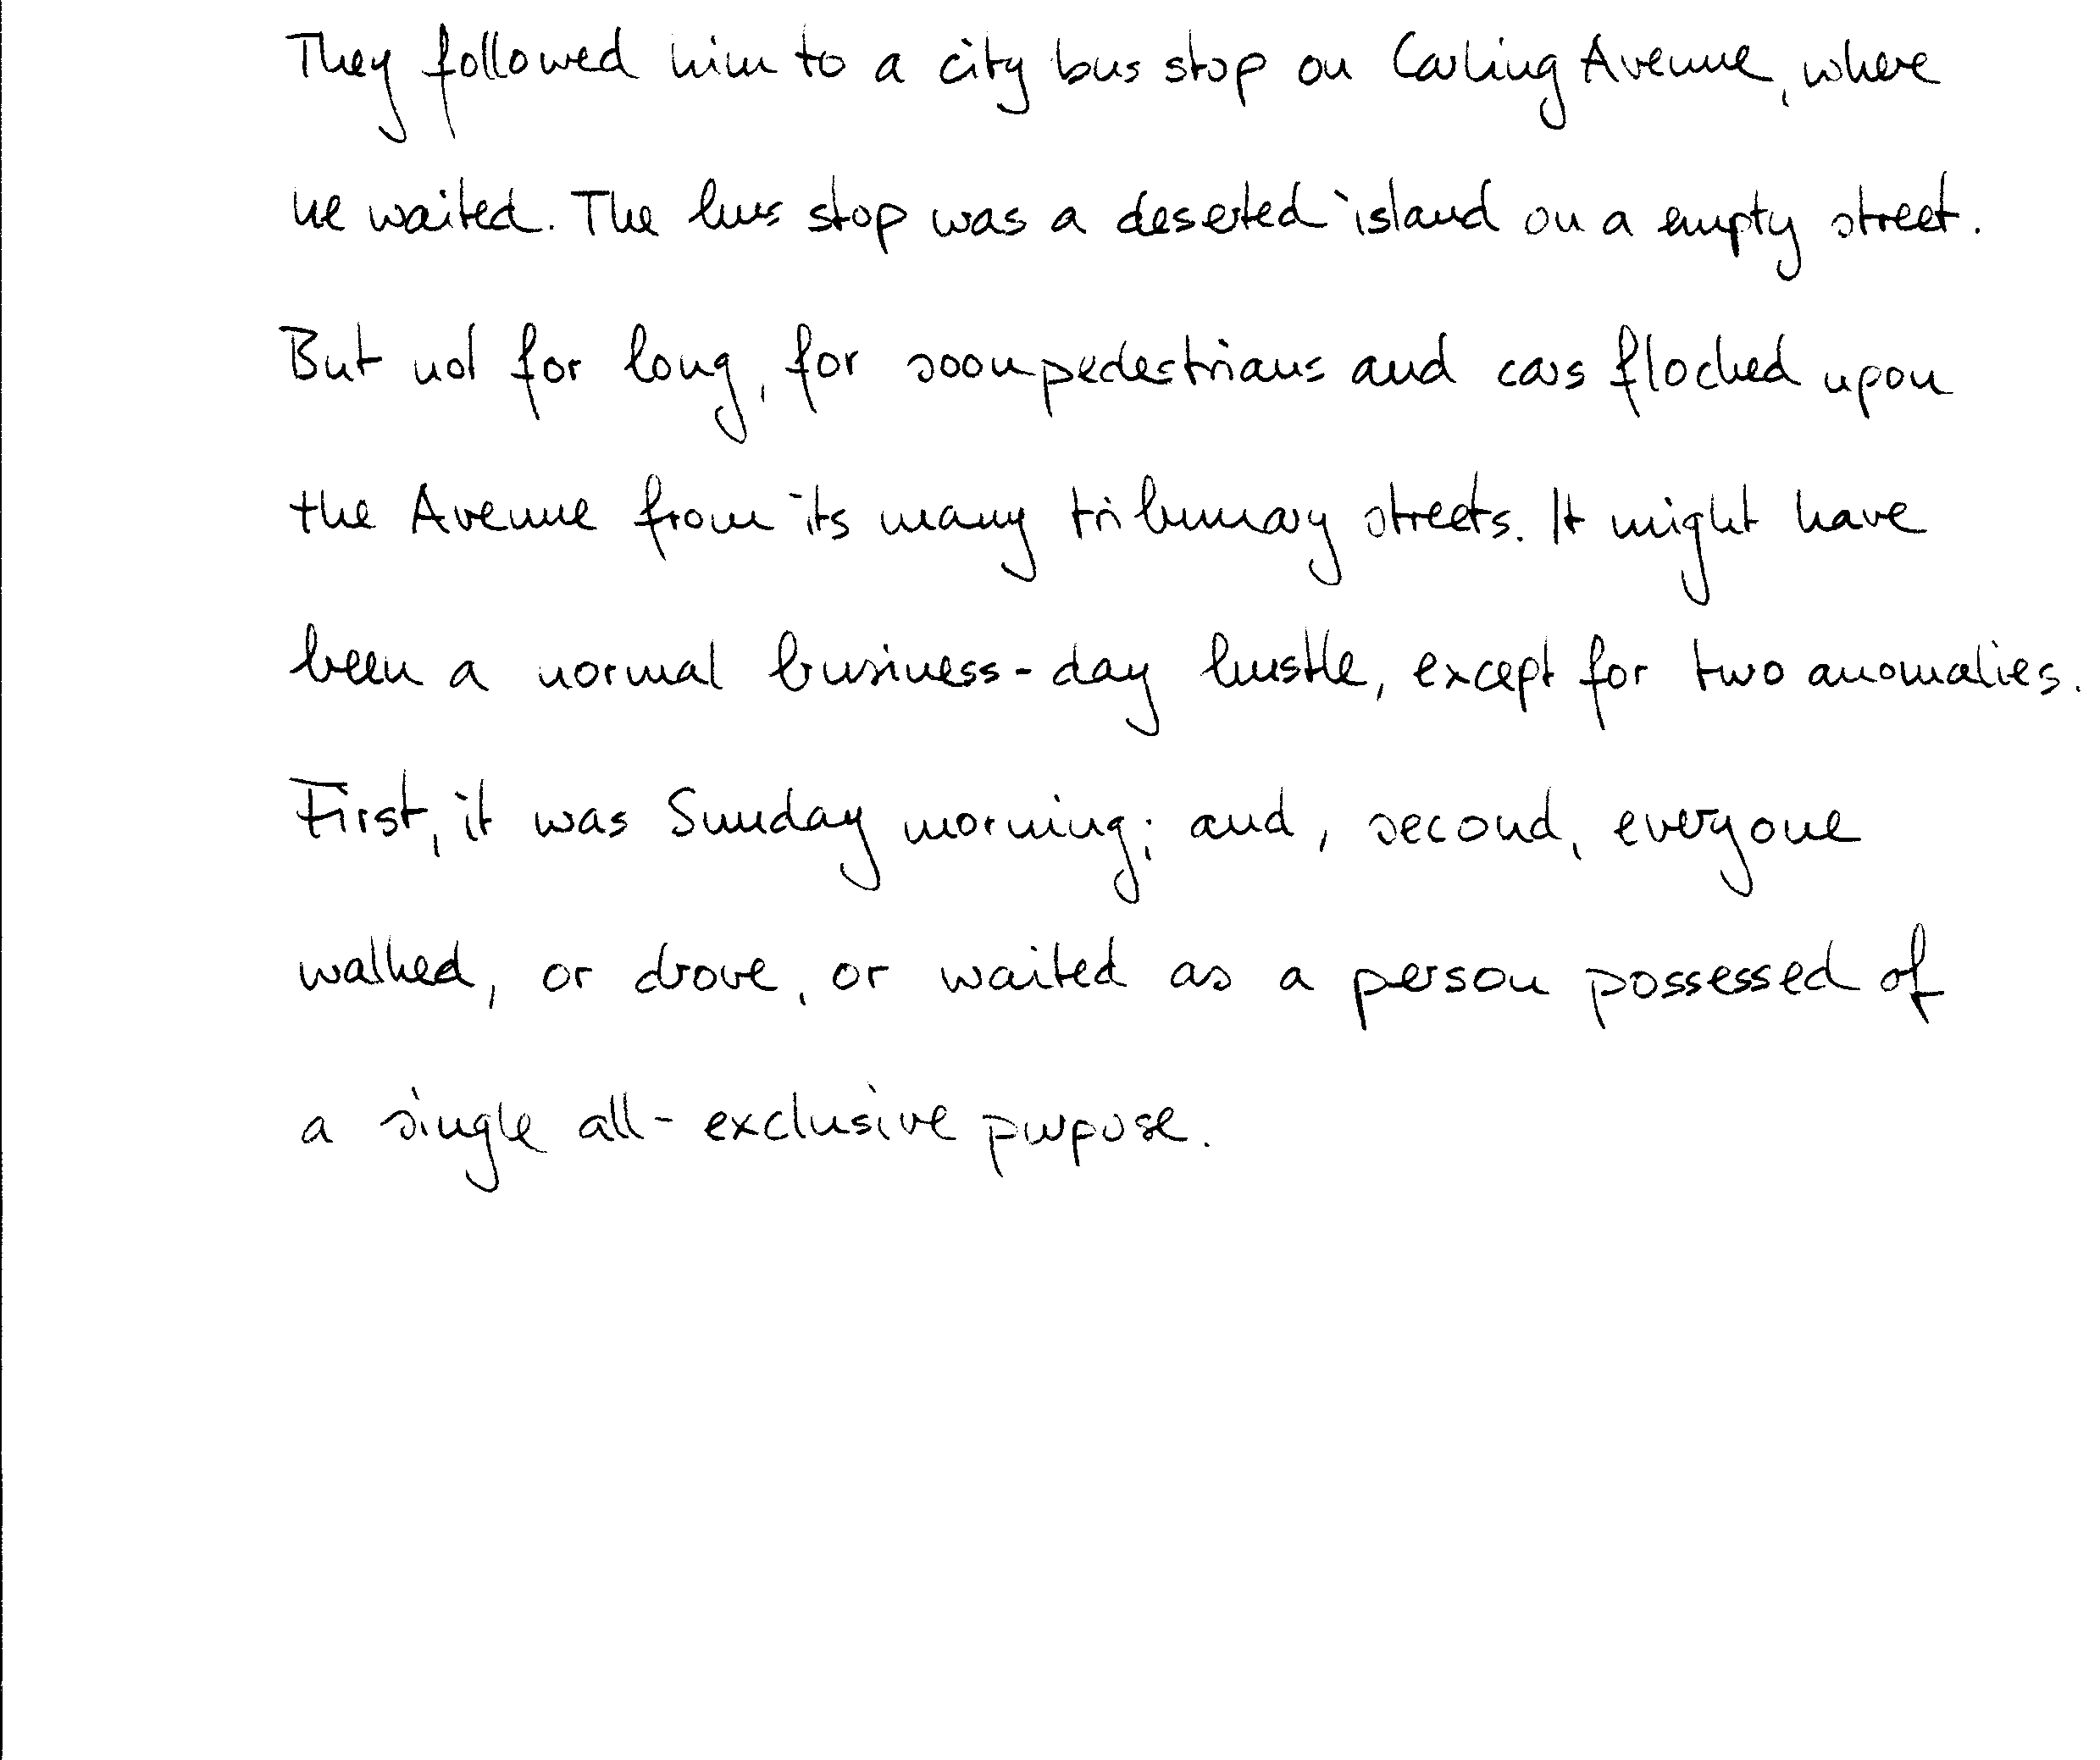 They followed him to a city bus stop on Carling Avenue, where
he waited. The bus stop was a deserted island on a empty street.
But not for long, for soon pedestrians and cars flocked upon
the Avenue from its many tribunary streets. It might have
been a normal business-day bustle, except for two anomalies.
First, it was Sunday morning; and, second, everyone
walked, or drove, or waited as a person possessed of
a single all-exclusive purpose.